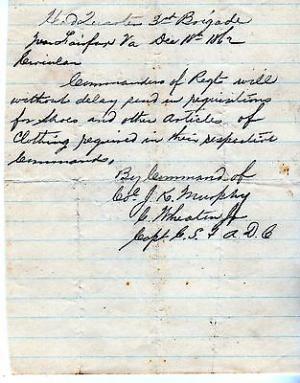 Head Quarters 3rd Brigade
Near Fairfax Va Dec 18th 1862
Circular
Commanders of Regts will
without delay send in requisitions
for Shoes and other Articles of
Clothing required in their respective
Commands.
By Command of
Col J. K. Murphy
C. Wheaton Jr
Capt C. S. & A. D. C